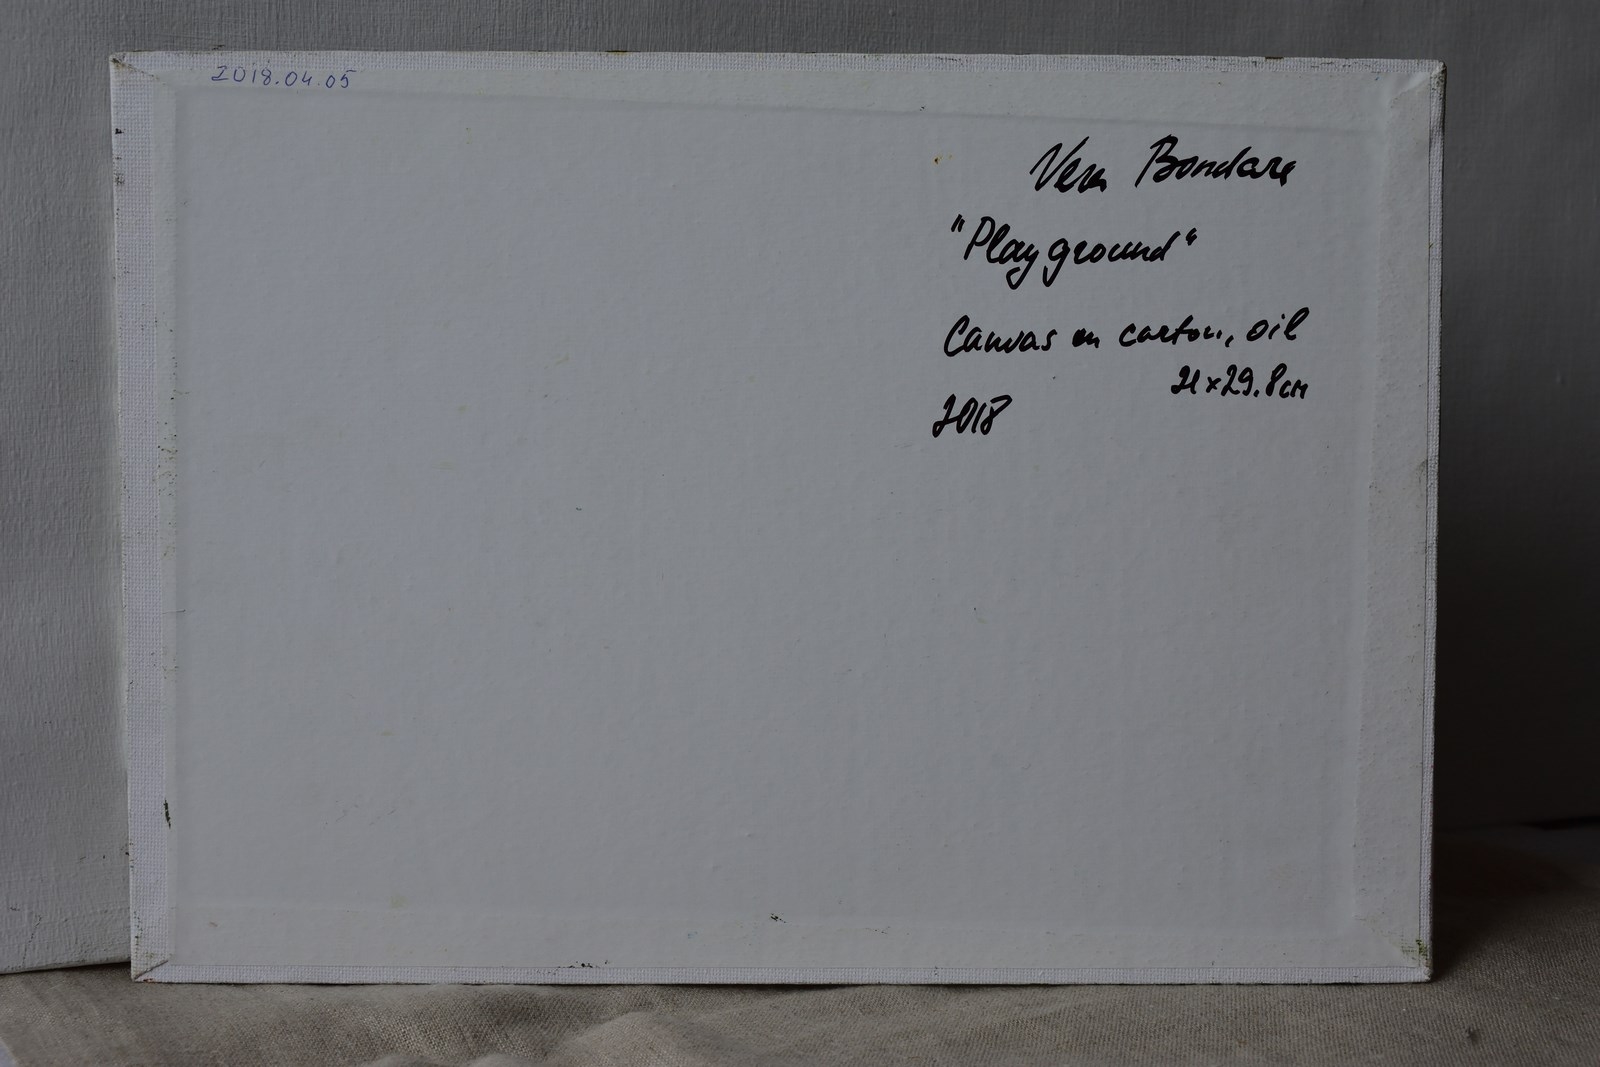 2018.04.05
Vera Bondare
"Playground"
Canvas on carton, oil
21x29.8cm
2018